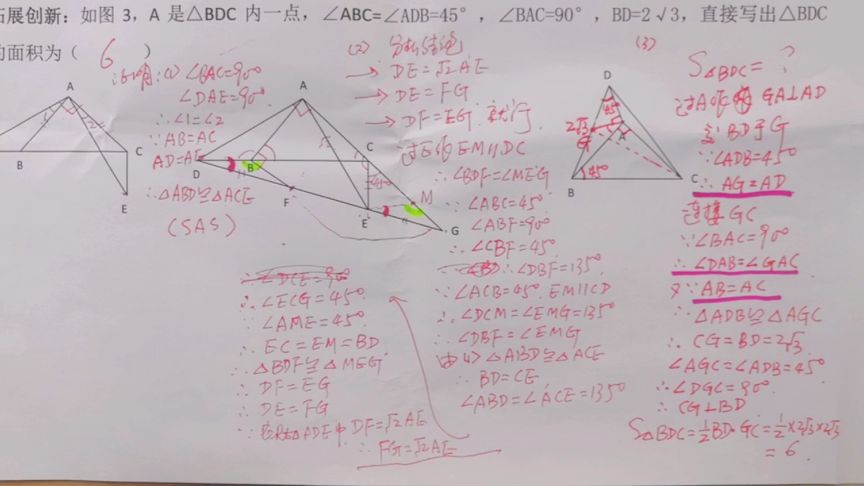 拓展创新：如图 3，A 是△BDC 内一点，∠ABC=∠ADB=45°，∠BAC=90°，BD=2√3，直接写出△BDC
的面积为（ 6 ）
(1) ∠BAC=90°
∠DAE=90°
∴ ∠1=∠2
∵ AB=AC
AD=AE
∴ △ABD≌△ACE
(SAS)
A
B
C
E
(2)
→ DE=√2AE
→ DE=FG
→ DF=EG
过E作EM∥DC
∴ ∠BDF=∠MEG
∵ ∠ABC=45°
∠ABF=90°
∴ ∠CBF=45°
∴ ∠DBF=135°
∵ ∠ACB=45°. EM∥CD
∴ ∠DCM=∠EMG=135°
∴ ∠DBF=∠EMG
由(1) △ABD≌△ACE
∴ BD=CE
∠ABD=∠ACE=135°
A
D
B
C
F
E
M
G
45°
∴ ∠DCE=90°
∴ ∠ECG=45°
∵ ∠AME=45°
∴ EC=EM=BD
∴ △BDF≌△MEG
∴ DF=EG
∴ DE=FG
△ADE中 DF=√2AE
∴ FG=√2AE
(3)
D
45°
2√3
G
B
45°
C
S△BDC= ?
过A作 GA⊥AD
交BD于G
∵ ∠ADB=45°
∴ AG=AD
连接GC
∵ ∠BAC=90°
∴ ∠DAB=∠GAC
又∵ AB=AC
∴ △ADB≌△AGC
∴ CG=BD=2√3
∠AGC=∠ADB=45°
∴ ∠DGC=90°
∴ CG⊥BD
S△BDC=½BD·GC=½×2√3×2√3
=6.